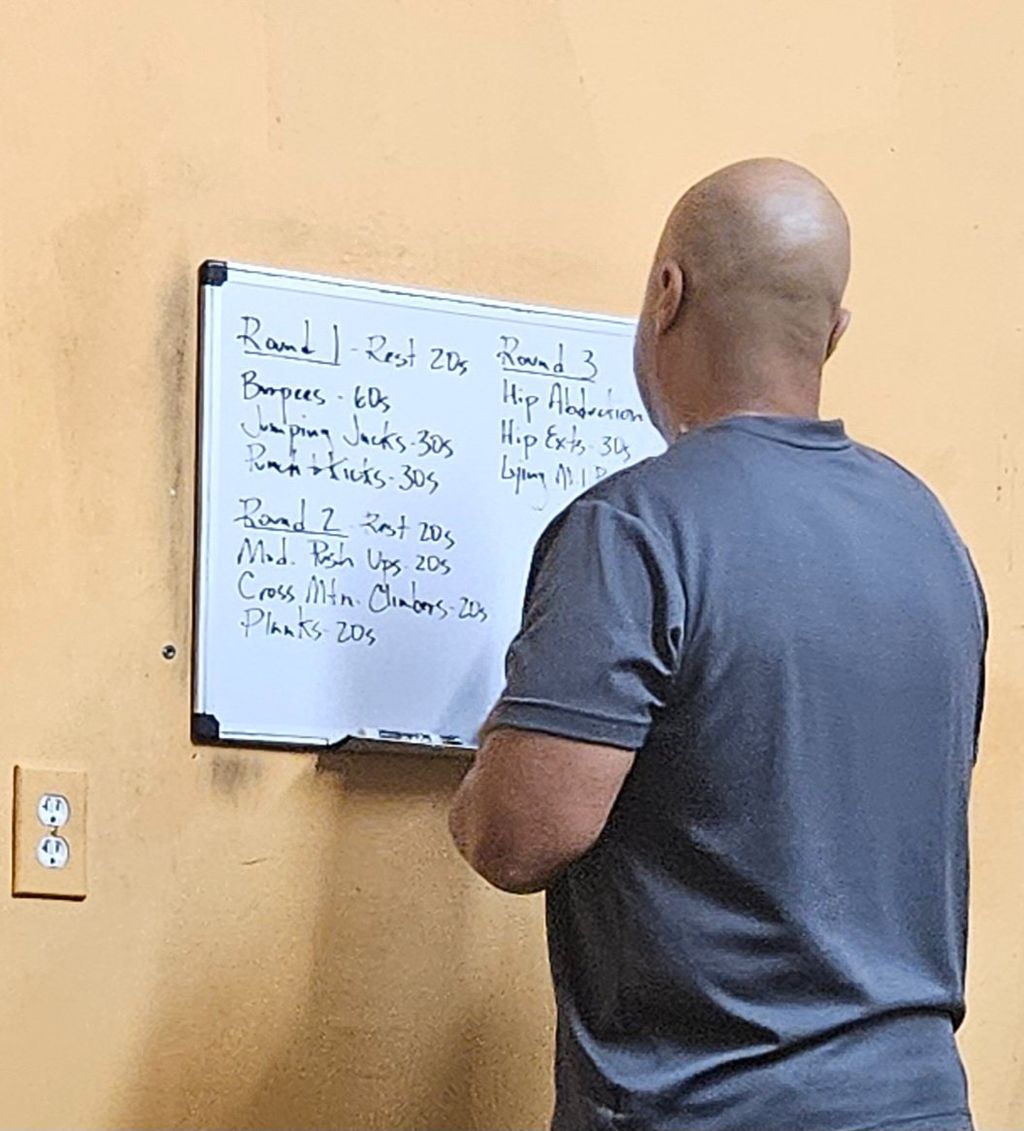 Round 1 - Rest 20s
Burpees - 60s
Jumping Jacks - 30s
Punch + Kicks - 30s
Round 2 - Rest 20s
Mod. Push Ups - 20s
Cross Mtn. Climbers - 20s
Planks - 20s
Round 3
Hip Abduction
Hip Exts - 30s
Lying